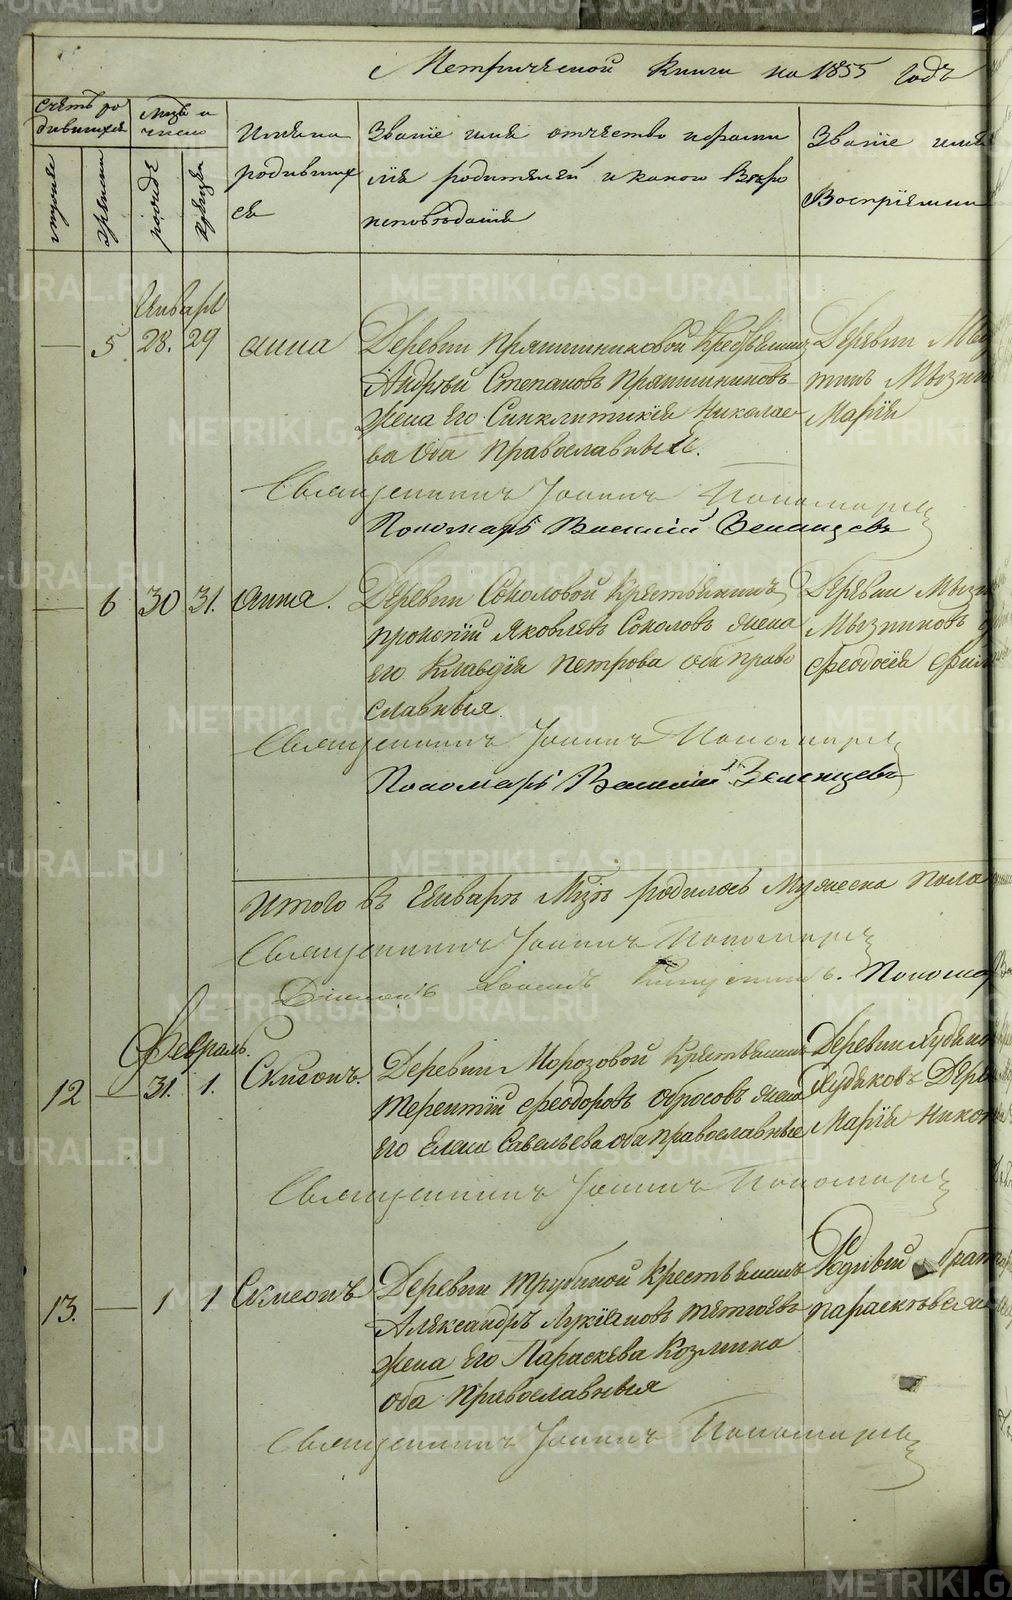 Метрической книги на 1855 годъ
Счетъ родившихся
Мѣсяцъ и число
мужеска
женска
рожде
креще
Имена родившихся
Званіе имя отчество и фамилія родителей и какого вѣроисповѣданія
Званіе имя
Воспріемни
Январь
5 28. 29 Анна
Деревни Пряпишниковой крестьянинъ
Андрей Степановъ Пряпишниковъ
жена его Синклитикія Николае
ва оба православные.
Деревни
Марія
Священникъ Іоаннъ Пономаревъ
Пономарь Василій Зеленцовъ
6 30 31. Анна.
Деревни Соколовой крестьянинъ
Яковлевъ Соколовъ жена
его Клавдія Петрова оба право
славныя
Деревни
Мызниковъ
Феодосія
Священникъ Іоаннъ Пономаревъ
Пономарь Василій Зеленцовъ
Итого въ Январѣ мѣсяцѣ родилось мужеска пола
Священникъ Іоаннъ Пономаревъ
Діаконъ Пономарь
Февраль.
12 31. 1. Симеонъ.
Деревни Морозовой крестьянинъ
Терентій Феодоровъ Обросовъ жена
его Елена Савельева оба православные
Деревни Худяко
Худяковъ Дерев
Марія Никон
Священникъ Іоаннъ Пономаревъ
13. 1 1 Симеонъ
Деревни Трубиной крестьянинъ
Александръ Лукіановъ Тетюевъ
жена его Параскева Козмина
оба православныя
Родный брат
Параскева
Священникъ Іоаннъ Пономаревъ
METRIKI.GASO-URAL.RU